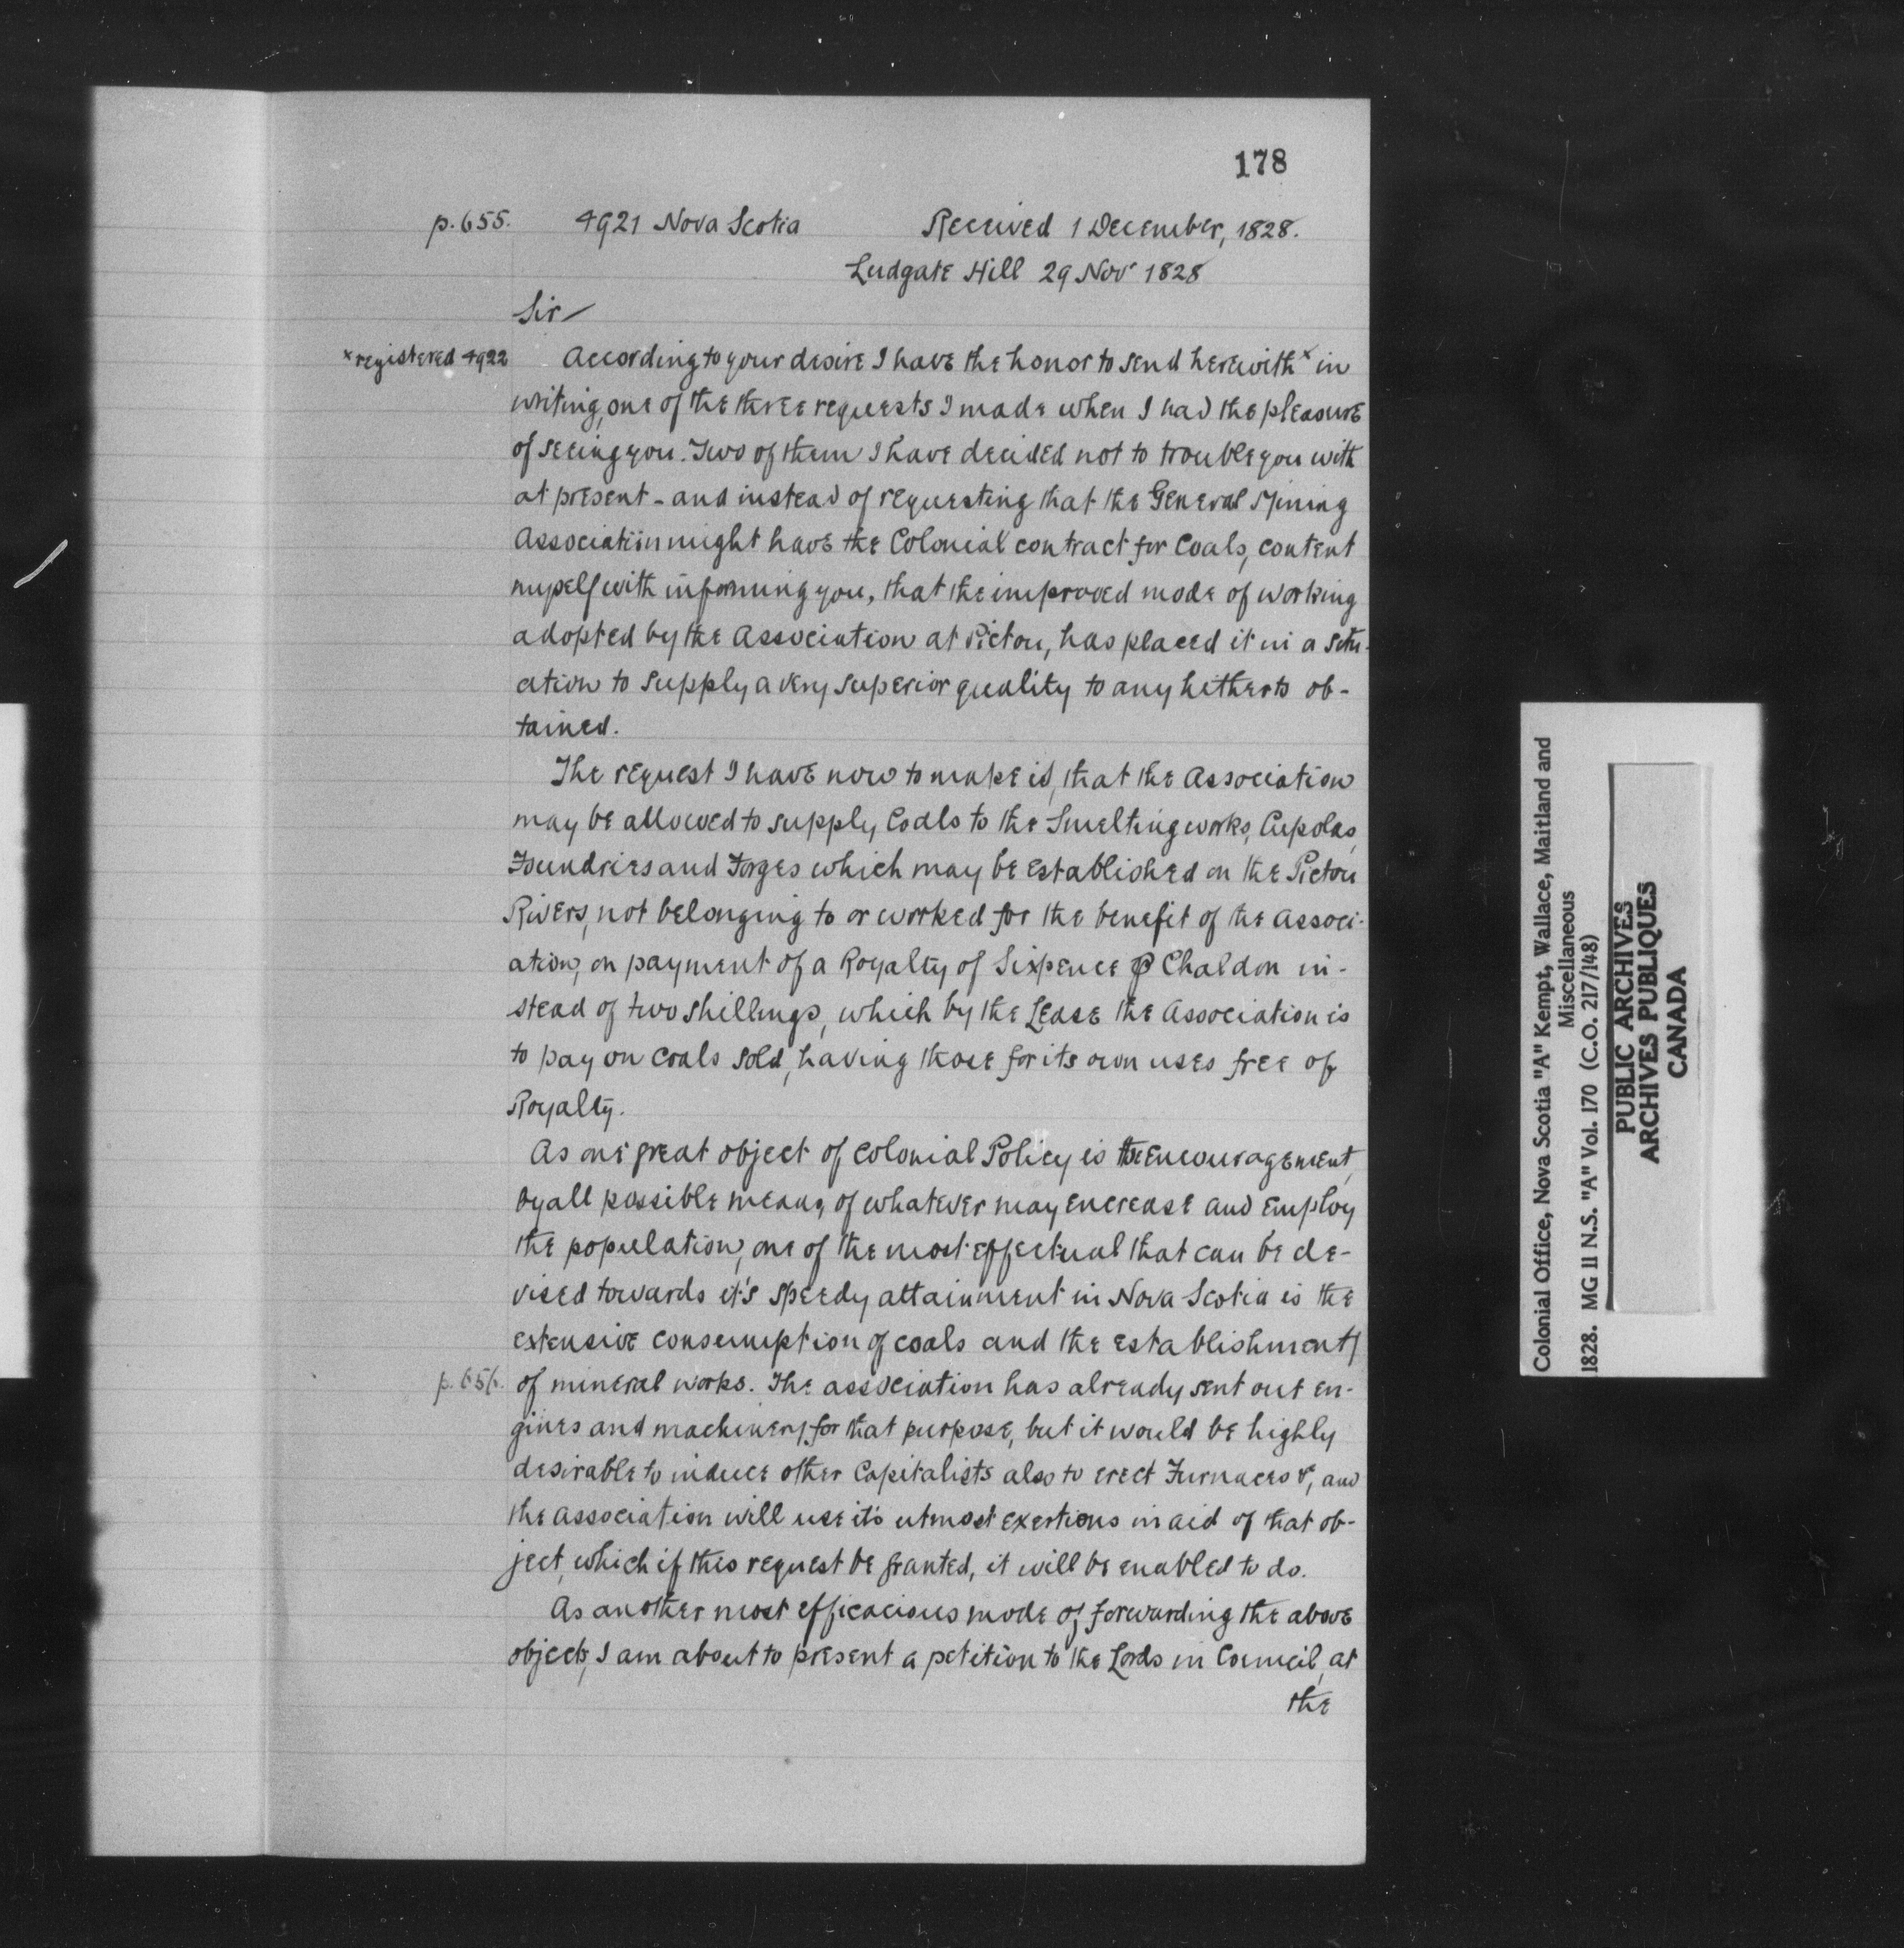 178
p. 655. 4921 Nova Scotia Received 1 December, 1828.
Ludgate Hill 29 Nov 1828
Sir
x registered 4922 According to your desire I have the honor to send herewith x in
writing, one of the three requests I made when I had the pleasure
of seeing you. Two of them I have decided not to trouble you with
at present - and instead of requesting that the General Mining
Association might have the Colonial contract for Coals, content
myself with informing you, that the improved mode of working
adopted by the Association at Pictou, has placed it in a situ-
ation to supply a very superior quality to any hitherto ob-
tained.
The request I have now to make is, that the Association
may be allowed to supply Coals to the Smelting works, Cupolas,
Foundries and Forges which may be established on the Pictou
Rivers, not belonging to or worked for the benefit of the Associ-
ation, on payment of a Royalty of Sixpence ⅌ Chaldon in-
stead of two shillings, which by the Lease the Association is
to pay on Coals sold, having those for its own uses free of
Royalty.
As one great object of Colonial Policy is the encouragement,
by all possible means, of whatever may encrease and employ
the population, one of the most effectual that can be de-
vised towards it's speedy attainment in Nova Scotia is the
extensive consumption of coals and the establishment/
p. 656. of mineral works. The association has already sent out en-
gines and machinery for that purpose, but it would be highly
desirable to induce other Capitalists also to erect Furnaces &c, and
the association will use it's utmost exertions in aid of that ob-
ject, which if this request be granted, it will be enabled to do.
As another most efficacious mode of forwarding the above
objects, I am about to present a petition to the Lords in Council, at
the
Colonial Office, Nova Scotia "A" Kempt, Wallace, Maitland and
Miscellaneous
1828. MG 11 N.S. "A" Vol. 170 (C.O. 217/148)
PUBLIC ARCHIVES
ARCHIVES PUBLIQUES
CANADA